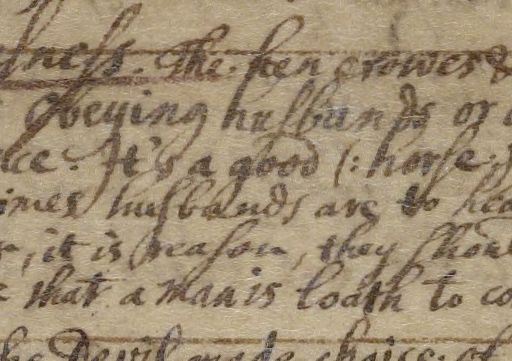 lness. The hen crowes &
obeying husbands or
ce. It's a good (: horse :)
imes husbands are to hea
r, it is reason, they shou
that a man is loath to co
he Devil made choice of